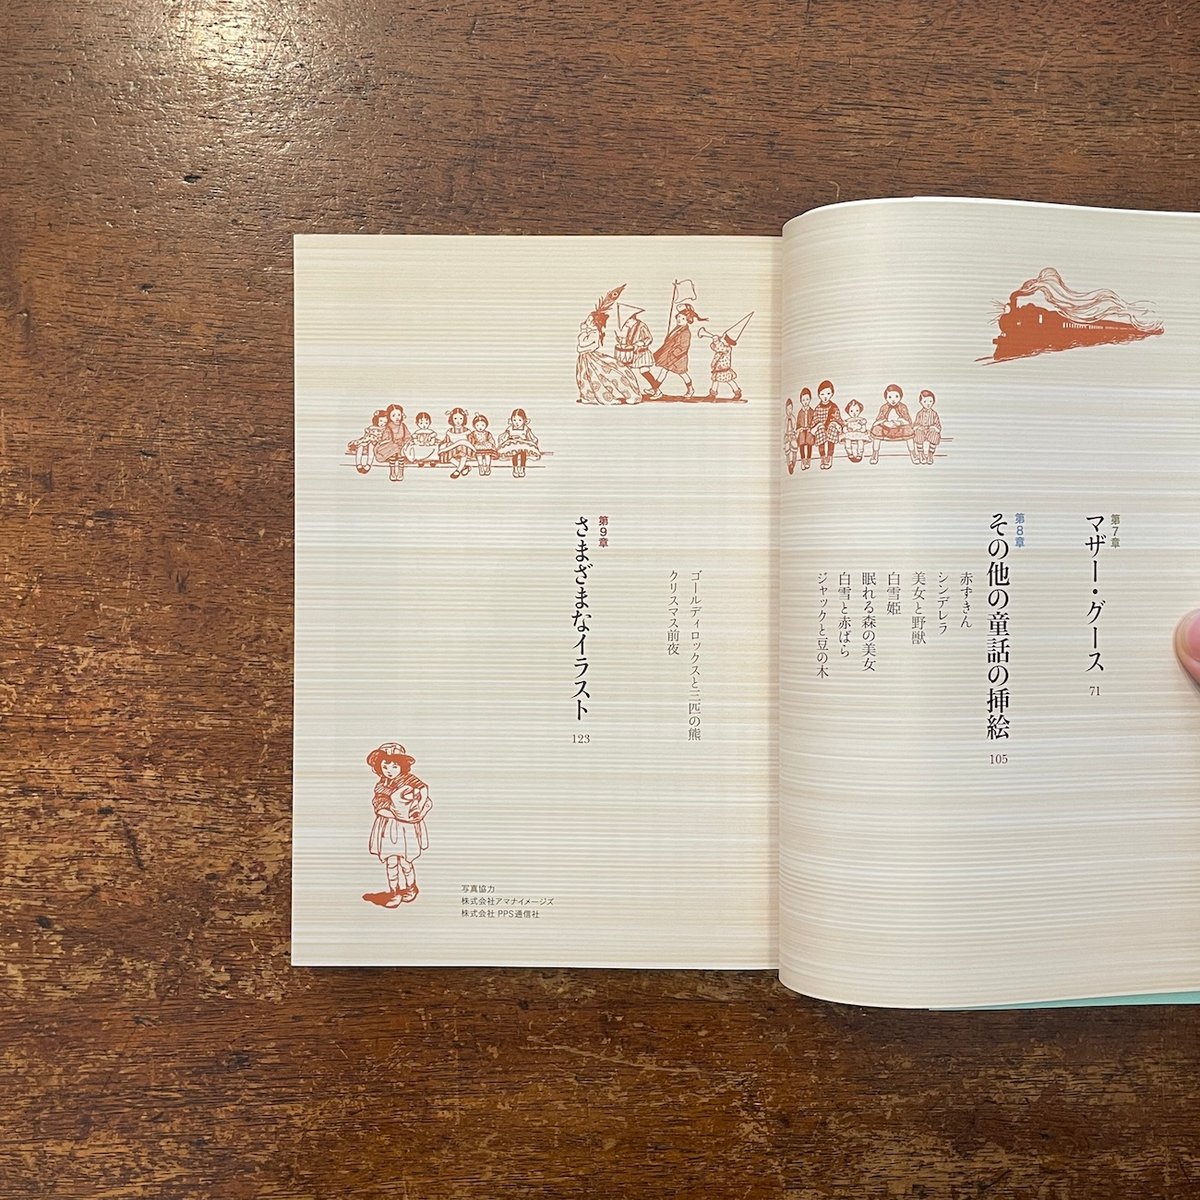 第7章
マザー・グース 71
第8章
その他の童話の挿絵 105
赤ずきん
シンデレラ
美女と野獣
白雪姫
眠れる森の美女
白雪と赤ばら
ジャックと豆の木
ゴールディロックスと三匹の熊
クリスマス前夜
第9章
さまざまなイラスト 123
写真協力
株式会社アマナイメージズ
株式会社 PPS通信社